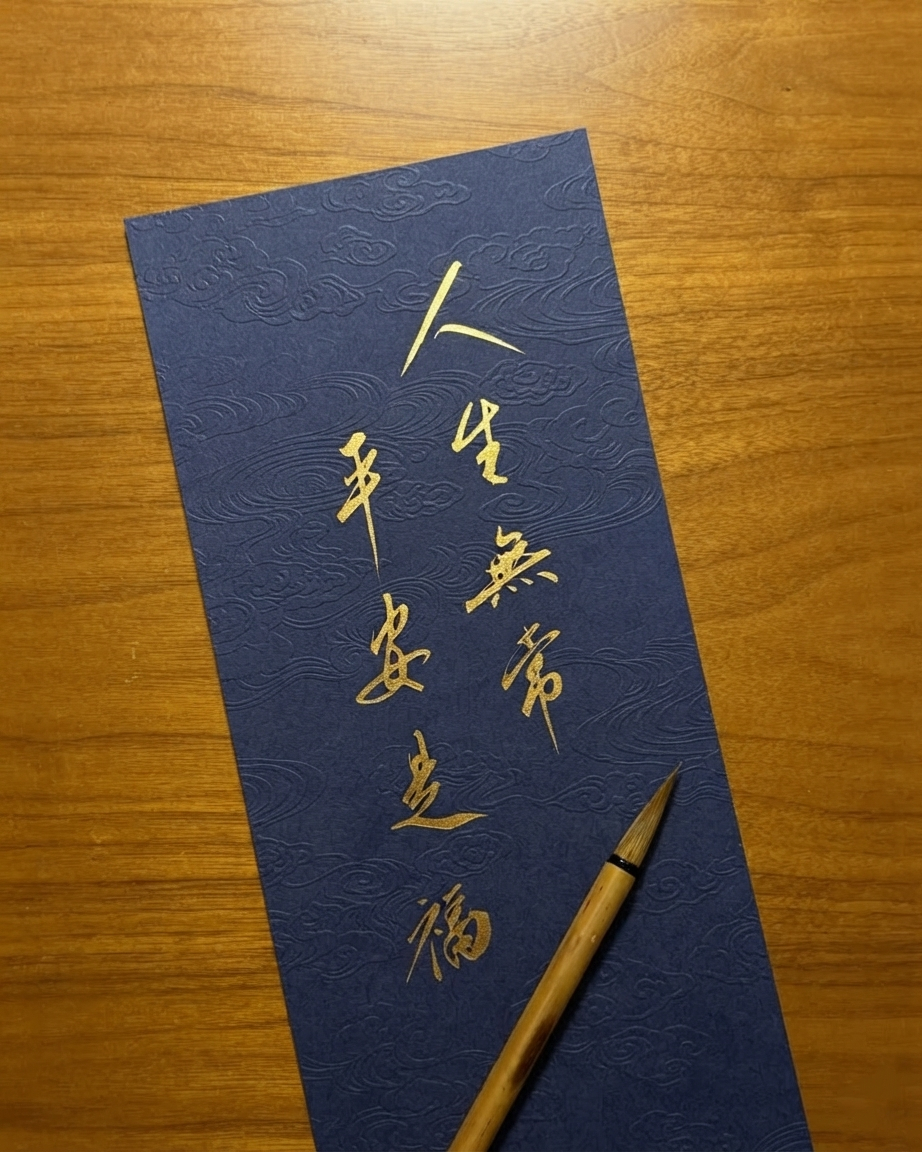 人生無常
平安是福